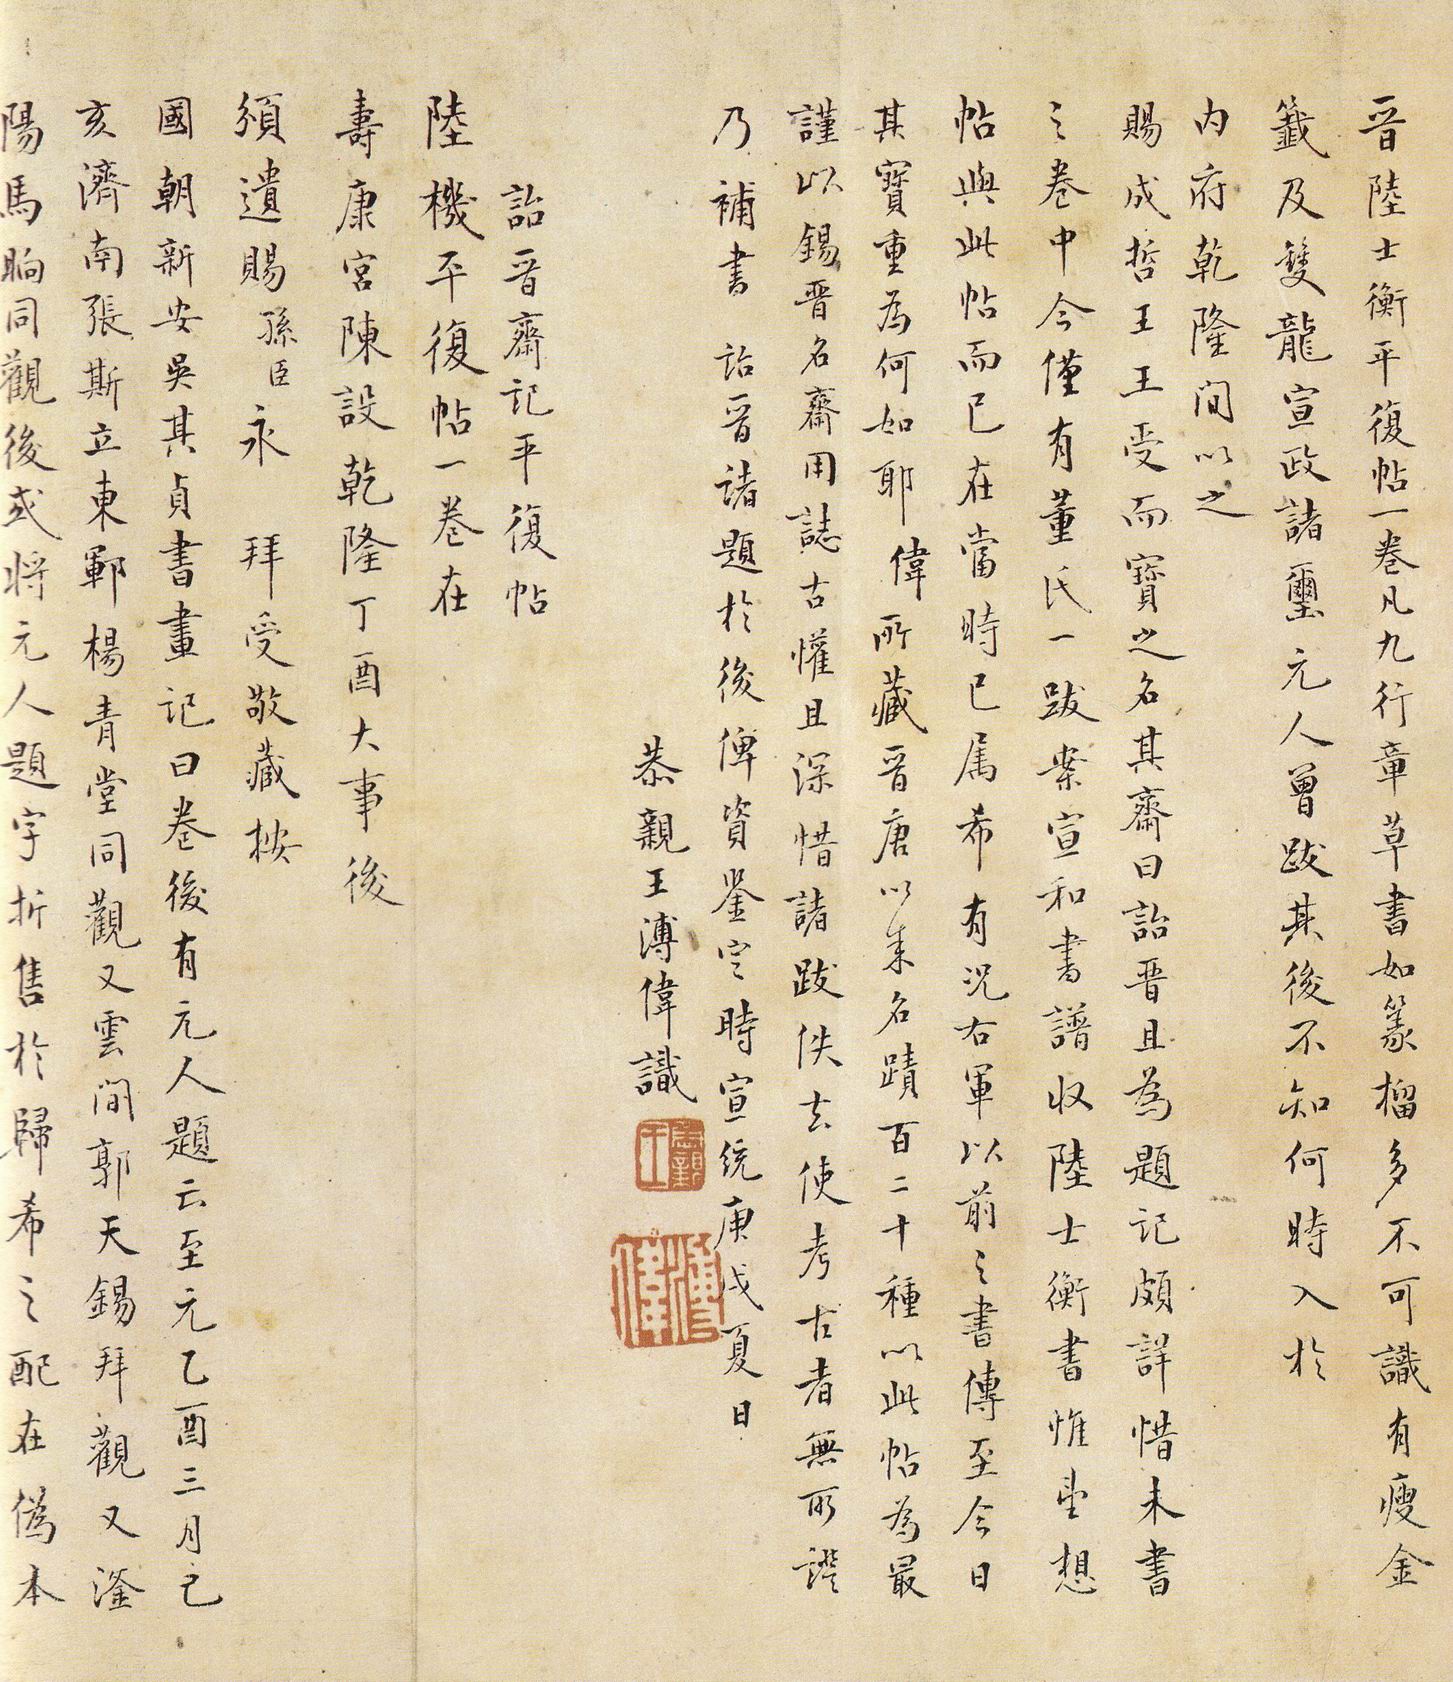 晋陸士衡平復帖一卷凡九行章草書如篆榴多不可識有瘦金
籤及雙龍宣政諸璽元人曾跋其後不知何時入於
内府乾隆間以之
賜成哲王王受而寶之名其齋曰詒晋且為題記頗詳惜未書
之卷中今僅有董氏一跋案宣和書譜收陸士衡書惟
想
帖與此帖而已在當時已属希有况右軍以前之書傳至今日
其寶重為何如耶偉所藏晋唐以来名蹟百二十種以此帖為最
謹以錫晋名齋用誌古懽且深惜諸跋佚去使考古者無所證
乃補書詒晋諸題於後俾資鉴定時宣統庚戌夏日
恭親王溥偉識
恭親王
溥偉
詒晋齋記平復帖
陸機平復帖一卷在
壽康宮陳設乾隆丁酉大事後
頒遺賜孫臣永 拜受敬藏按
國朝新安吳其貞書畫記曰卷後有元人題云至元乙酉三月己
亥濟南張斯立東鄆楊青堂同觀又雲間郭天錫拜觀又滏
陽馬昫同觀後或将元人題字折售於歸希之配在偽本